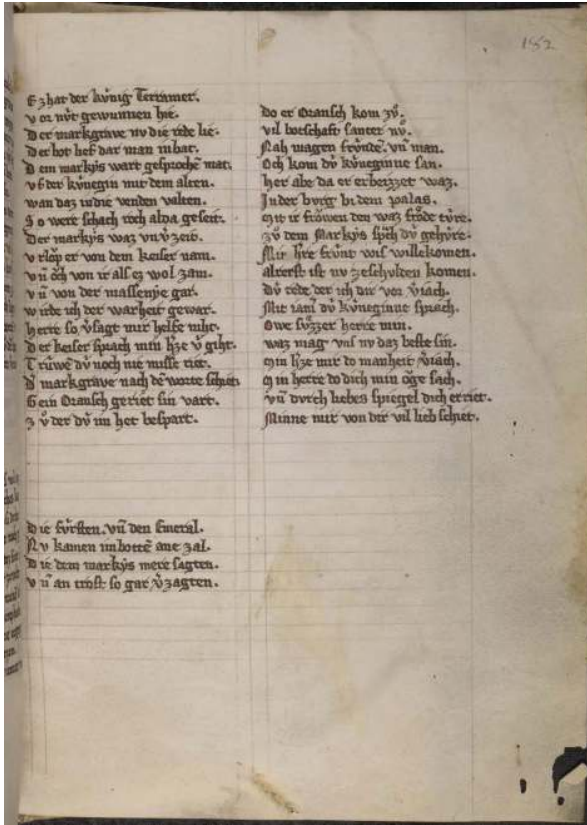 152
E z hat der kv̊nig Terramer.
v or nv̊t gewunnen hie.
D er markgrave nv die rede lie.
D er bot lief dar man in bat.
D em markẏs wart gesprochē mat.
v õ der kv̊negin mit dem alten.
wan daz in die venden valten.
S o were schach roch alda geseit.
Der markẏs waz vn v̊ zeit.
v rlop er von dem keiser nam.
v ñ o̊ch von ir als ez wol zam.
v ñ von der massenẏe gar.
w irde ich der warheit gewar.
herre so v̊sagt mir helfe niht.
D er keiser sprach min hʼze v̊ giht.
T rúwe dv̊ noch nie misse riet.
Dʼ markgrave nach dē worte schiet.
G ein Oransch geriet sin vart.
z v̊ der dv̊ im het bespart.
D ie fv̊rsten. vñ den Emeral.
N v kamen im bottē ane zal.
D ie dem markẏs mere sagten.
v ñ an trost so gar v̊zagten.
do er Oransch kom zv̊.
vil botschaft santer nv̊.
Nah magen frv̊nde. vñ man.
Och kom dv̊ kv̊neginne san.
her abe da er erbeizzet waz.
In der bvrg bi dem palas.
mit ir frowen den waz frode tv̊re.
zv̊ dem Markẏs spʼch dv̊ gehv̊re.
Mir hʼre frv̊nt wis willekomen.
alrerst ist nv zeschvlden komen.
dv̊ rede der ich dir vor v̊iach.
Mit iamʼ dv̊ kv̊neginne sprach.
Owe sv̊zzer herre min.
waz mag vns nv daz beste sin.
min hʼze mir do manheit v̊iach.
min herre do dich min oge sach.
vñ dvrch liebes spiegel dich erriet.
Minne mir von dir vil lieb schiet.